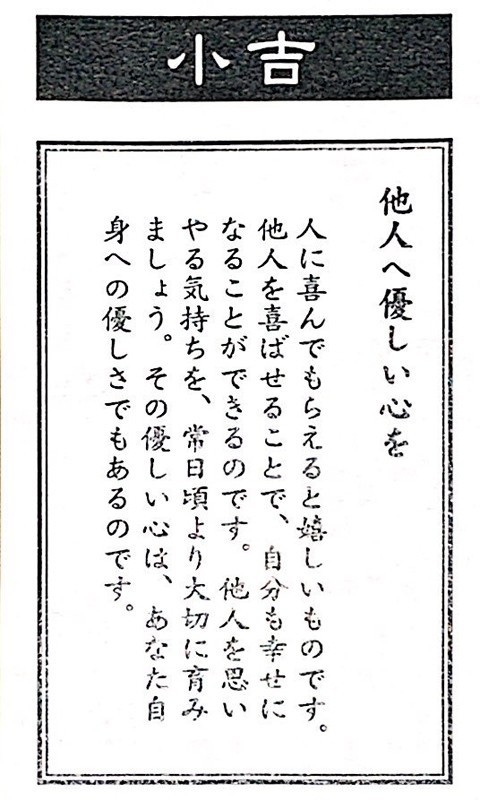 小吉
他人へ優しい心を
人に喜んでもらえると嬉しいものです。
他人を喜ばせることで、自分も幸せに
なることができるのです。他人を思い
やる気持ちを、常日頃より大切に育み
ましょう。その優しい心は、あなた自
身への優しさでもあるのです。